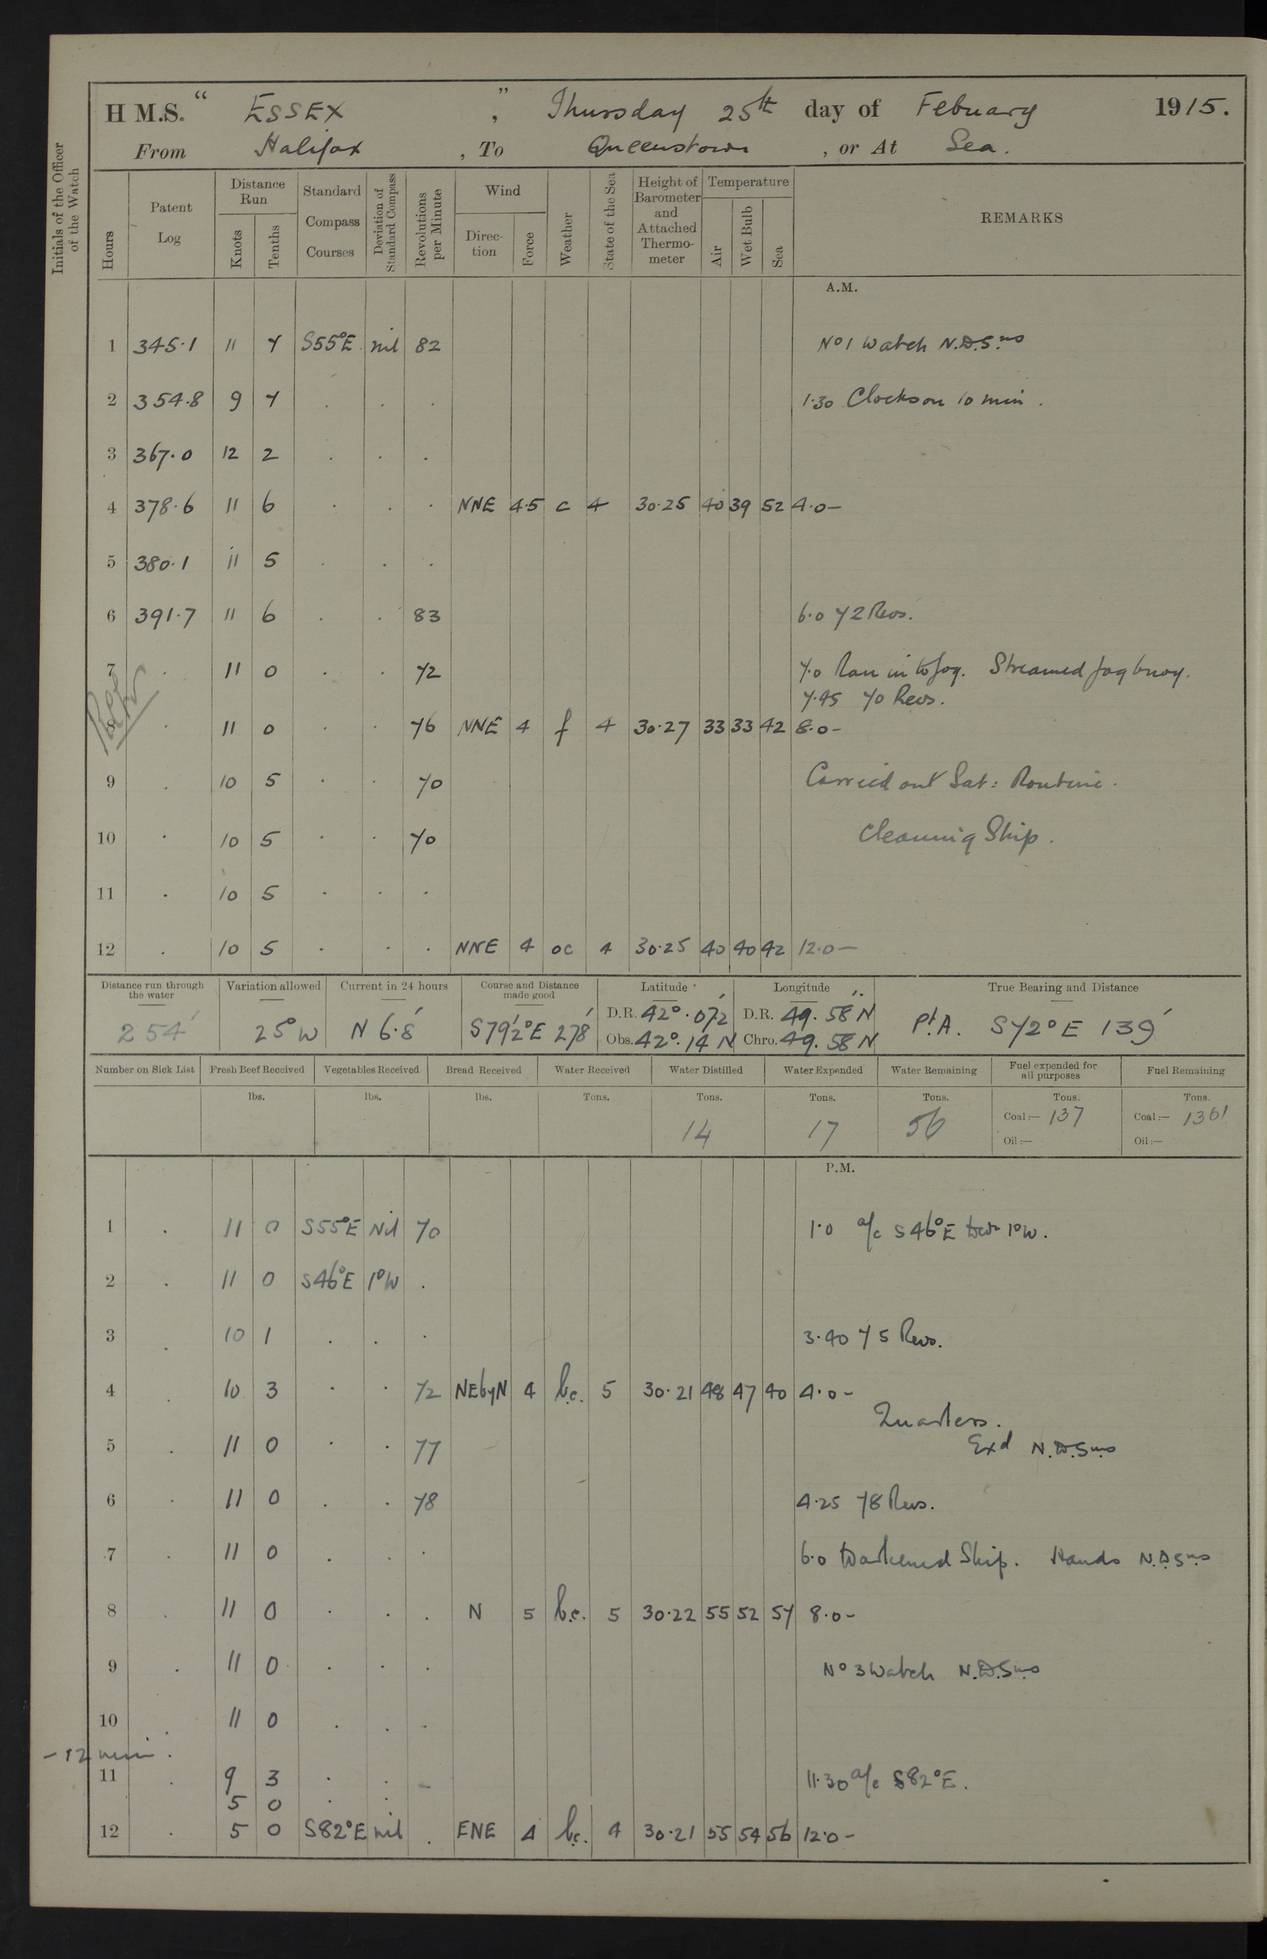 H.M.S. “ ESSEX ” , Thursday 25th day of Febuary 1915.
From Halifax , To Queenstown , or At Sea.
Initials of the Officer of the Watch
Hours Patent Log Distance Run Knots Tenths Standard Compass Courses Deviation of Standard Compass Revolutions per Minute Wind Direction Force Weather State of the Sea Height of Barometer and Attached Thermometer Temperature Air Wet Bulb Sea REMARKS
A.M.
1 345.1 11 7 S55°E nil 82 No 1 Watch N.D.Sns
2 354.8 9 7 . . . 1.30 Clocks on 10 min.
3 367.0 12 2 . . .
4 378.6 11 6 . . . NNE 4.5 c 4 30.25 40 39 52 4.0-
5 380.1 11 5 . . .
6 391.7 11 6 . . 83 6.0 72 Revs.
7 . 11 0 . . 72 7.0 Ran into fog. Streamed fog buoy.
7.45 70 Revs.
. 11 0 . . 76 NNE 4 f 4 30.27 33 33 42 8.0-
9 . 10 5 . . 70 Carried out Sat: Routine.
10 . 10 5 . . 70 Cleaning Ship.
11 . 10 5 . . .
12 . 10 5 . . . NNE 4 oc 4 30.25 40 40 42 12.0-
Distance run through the water Variation allowed Current in 24 hours Course and Distance made good Latitude Longitude True Bearing and Distance
254' 25°W N 6.8' S79½°E 278' D.R. 42°.07½' D.R. 49. 58 N Pt A. S72°E 139'
Obs. 42°.14 N Chro. 49. 58 N
Number on Sick List Fresh Beef Received Vegetables Received Bread Received Water Received Water Distilled Water Expended Water Remaining Fuel expended for all purposes Fuel Remaining
lbs. lbs. lbs. Tons. Tons. Tons. Tons. Tons. Tons.
14 17 56 Coal:— 137 Coal:— 1361
Oil:— Oil:—
P.M.
1 . 11 0 S55°E Nil 70 1.0 a/c S46°E Dev 1°W.
2 . 11 0 S46°E 1°W .
3 . 10 1 . . . 3.40 75 Revs.
4 . 10 3 . . 72 NEbyN 4 b.c. 5 30.21 48 47 40 4.0-
Quarters.
5 . 11 0 . . 77 Exd N.D.Sns
6 . 11 0 . . 78 4.25 78 Revs.
7 . 11 0 . . . 6.0 Darkened Ship. Hands N.D.Sns
8 . 11 0 . . . N 5 b.c. 5 30.22 55 52 57 8.0-
9 . 11 0 . . . No 3 Watch N.D.Sns
10 . 11 0 . . .
- 12 min.
11 . 9 3 . . . 11.30 a/c S82°E.
5 0 . .
12 . 5 0 S82°E nil . ENE 4 b.c. 4 30.21 55 54 56 12.0-